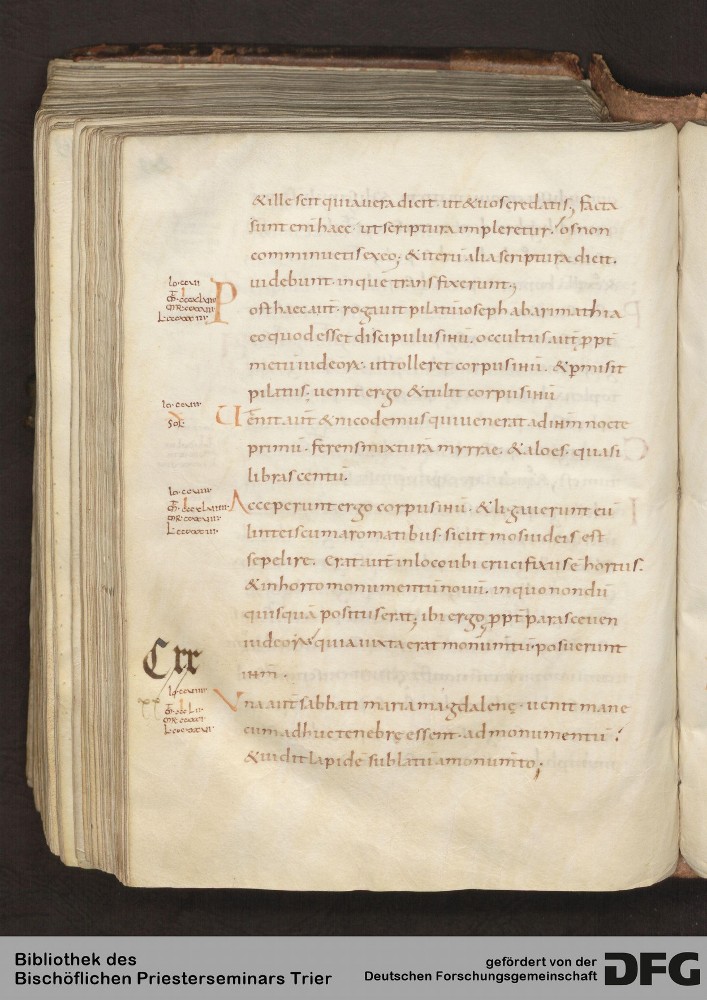 & ille scit quia uera dicit · ut & uos credatis; facta
sunt enī haec · ut scriptura impleretur · os non
comminuetis ex eo; & iterū alia scriptura dicit ·
uidebunt in que transfixerunt;
Post haec aūt · rogauit pilatū ioseph ab arimathia
eo quod esset discipulus ihū · occultus aūt ppt
metū iudeoꝝ · ut tolleret corpus ihū · & pmisit
pilatus; uenit ergo & tulit corpus ihū
Uenit aūt & nicodemus qui uenerat ad ihm nocte
primū · ferens mixturā myrrae · & aloes · quasi
libras centū ·
Acceperunt ergo corpus ihū · & ligauerunt eū
linteis cum aromatibus · sicut mos iudeis est
sepelire · Erat aūt in loco ubi crucifixus ē hortus ·
& in horto monumentū nouū · in quo nondū
quisquā positus erat; ibi ergo ppt parasceuen
iudeoꝝ quia iuxta erat monumtū posuerunt
ihm ·
Cxx
Una aūt sabbati maria magdalenę · uenit mane
cum adhuc tenebrę essent · ad monumentū
& uidit lapidē sublatū a monumto;
Bibliothek des
Bischöflichen Priesterseminars Trier
gefördert von der
Deutschen Forschungsgemeinschaft
DFG